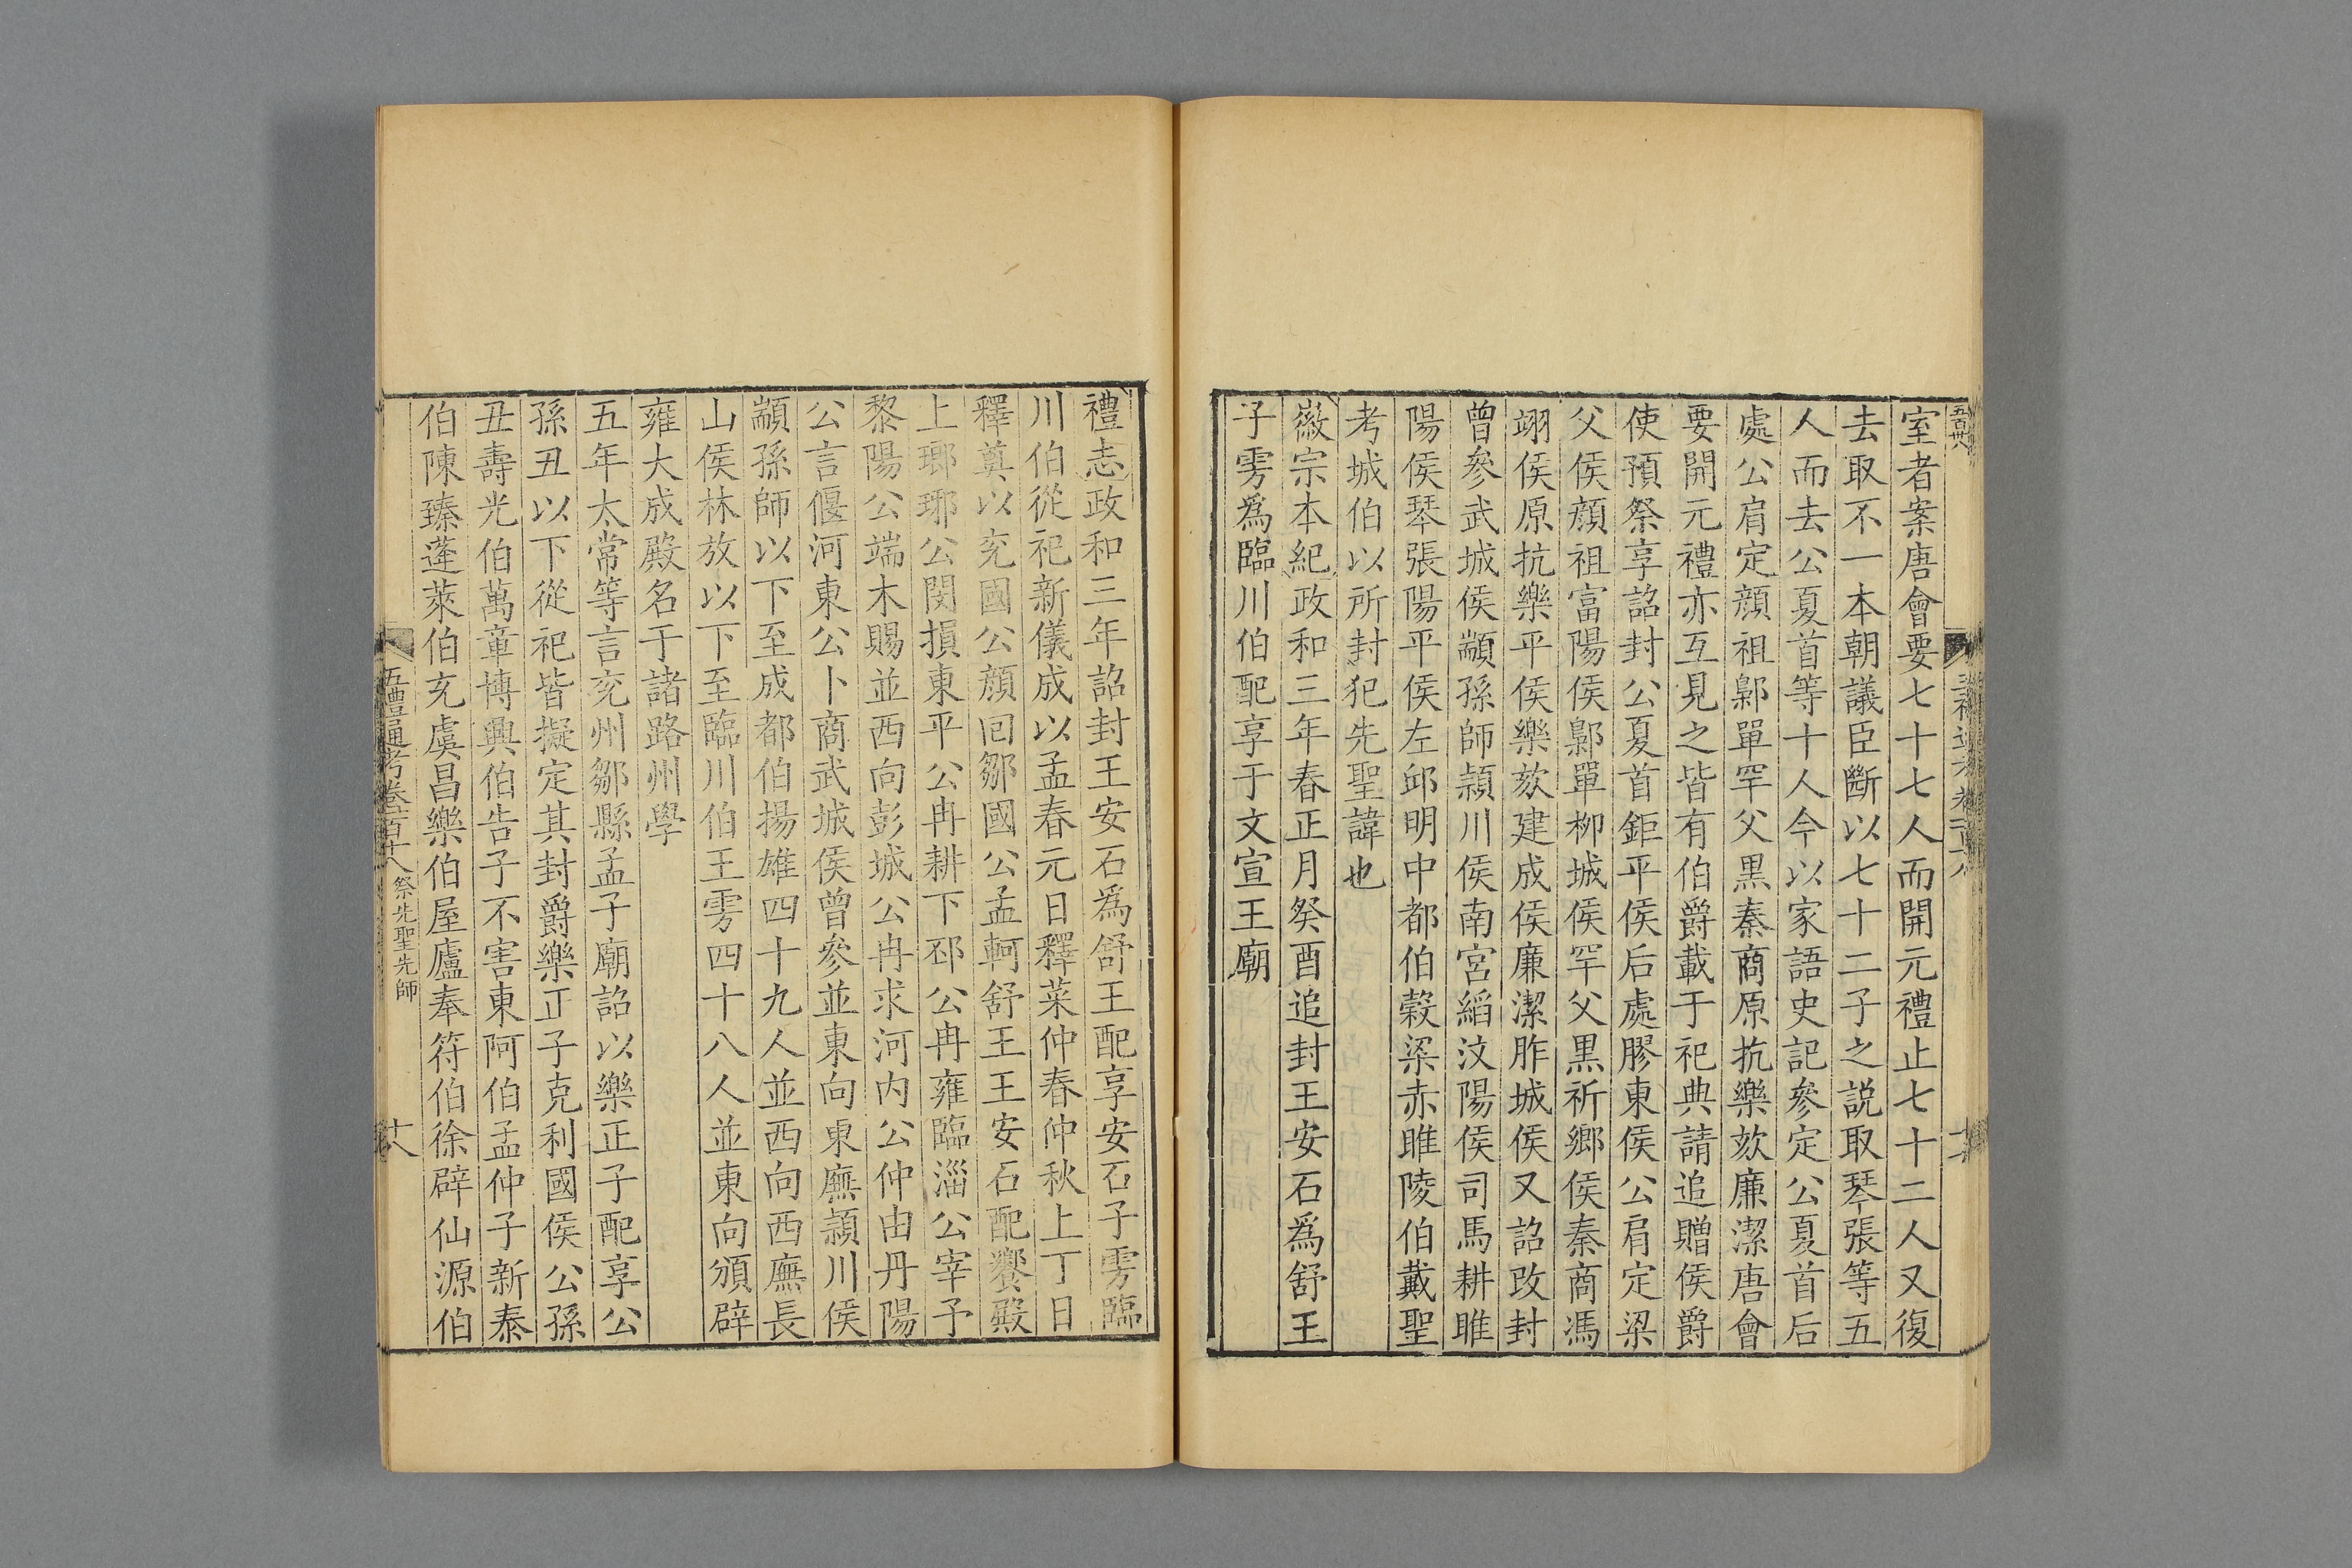 室者案唐會要七十七人而開元禮止七十二人又復
去取不一本朝議臣斷以七十二子之説取琴張等五
人而去公夏首等十人今以家語史記參定公夏首后
處公肩定顔祖鄡單罕父黒秦商原抗樂欬廉潔唐會
要開元禮亦互見之皆有伯爵載于祀典請追贈侯爵
使預祭享詔封公夏首鉅平侯后處膠東侯公肩定梁
父侯顔祖富陽侯鄡單柳城侯罕父黒祈鄉侯秦商馮
翊侯原抗樂平侯樂欬建成侯廉潔胙城侯又詔改封
曾參武城侯顓孫師潁川侯南宮縚汶陽侯司馬耕睢
陽侯琴張陽平侯左邱明中都伯穀梁赤睢陵伯戴聖
考城伯以所封犯先聖諱也
徽宗本紀政和三年春正月癸酉追封王安石爲舒王
子雱爲臨川伯配享于文宣王廟
禮志政和三年詔封王安石爲舒王配享安石子雱臨
川伯從祀新儀成以孟春元日釋菜仲春仲秋上丁日
釋奠以兖國公顔回鄒國公孟軻舒王王安石配饗殿
上瑯琊公閔損東平公冉耕下邳公冉雍臨淄公宰予
黎陽公端木賜並西向彭城公冉求河内公仲由丹陽
公言偃河東公卜商武城侯曾參並東向東廡潁川侯
顓孫師以下至成都伯揚雄四十九人並西向西廡長
山侯林放以下至臨川伯王雱四十八人並東向頒辟
雍大成殿名于諸路州學
五年太常等言兖州鄒縣孟子廟詔以樂正子配享公
孫丑以下從祀皆擬定其封爵樂正子克利國侯公孫
丑壽光伯萬章博興伯告子不害東阿伯孟仲子新泰
伯陳臻蓬萊伯充虞昌樂伯屋廬奉符伯徐辟仙源伯
五禮通考卷一百十八 祭先聖先師
十八